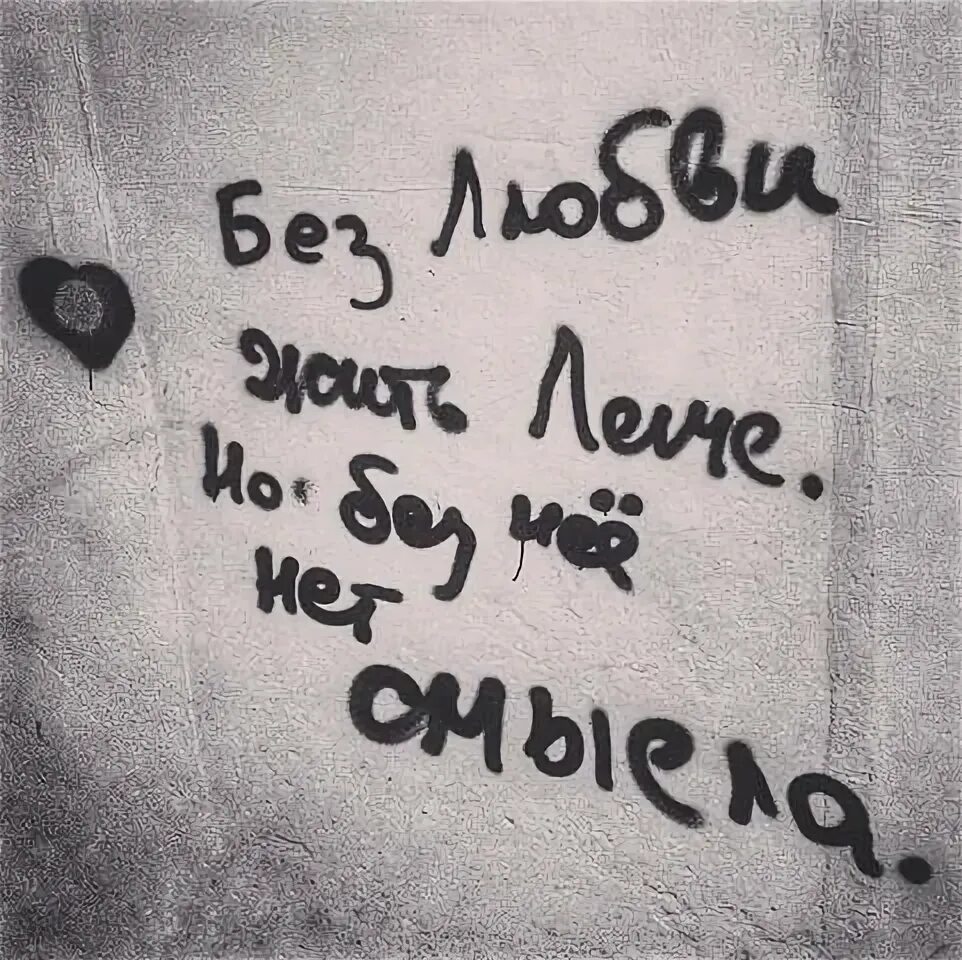 Без Любви
жить Легче.
Но без неё
нет
смысла.